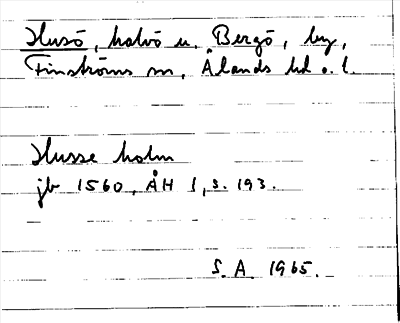 Husö, halvö u. Bergö, by,
Finströms sn, Ålands hd o. l.
Husse holm
jb 1560, ÅH 1, s. 193.
S. A. 1965.